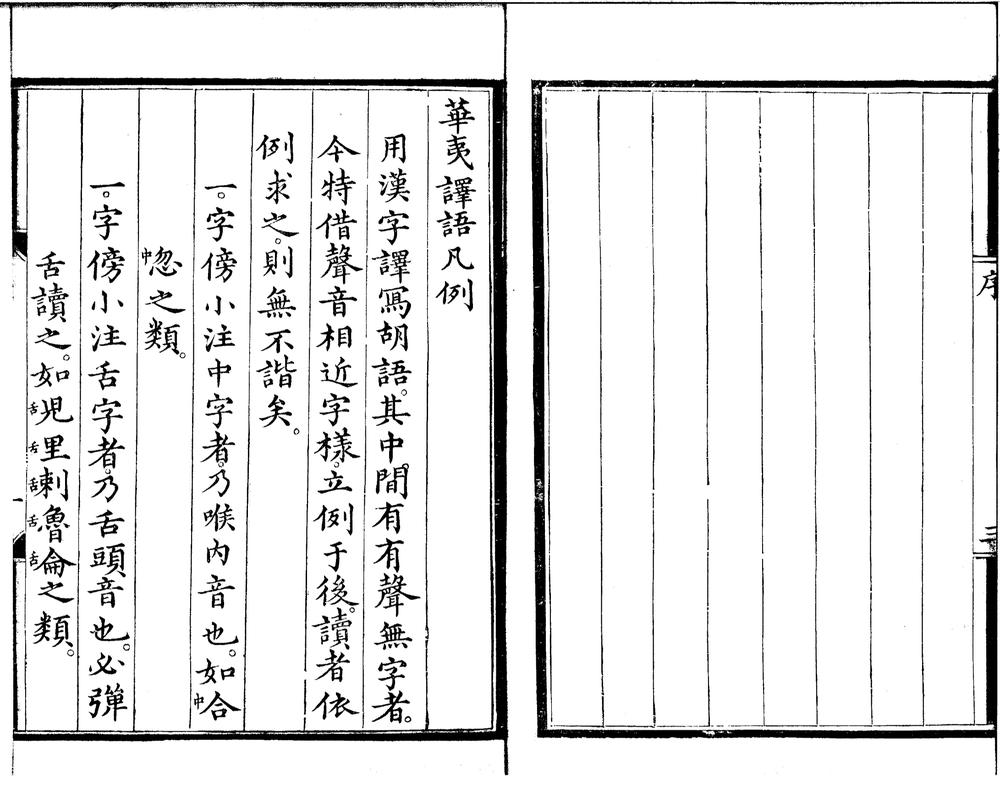 序
三
華夷譯語凡例
用漢字譯寫胡語。其中間有有聲無字者。
今特借聲音相近字樣。立例于後。讀者依
例求之。則無不諧矣。
一。字傍小注中字者。乃喉內音也。如中合
中忽之類。
一。字傍小注舌字者。乃舌頭音也。必彈
舌讀之。如舌児舌里舌剌舌魯舌侖之類。
一